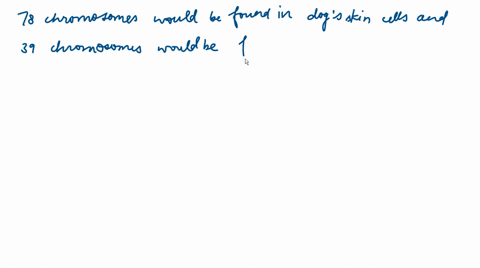 78 chromosomes would be found in dog's skin cells and
39 chromosomes would be f